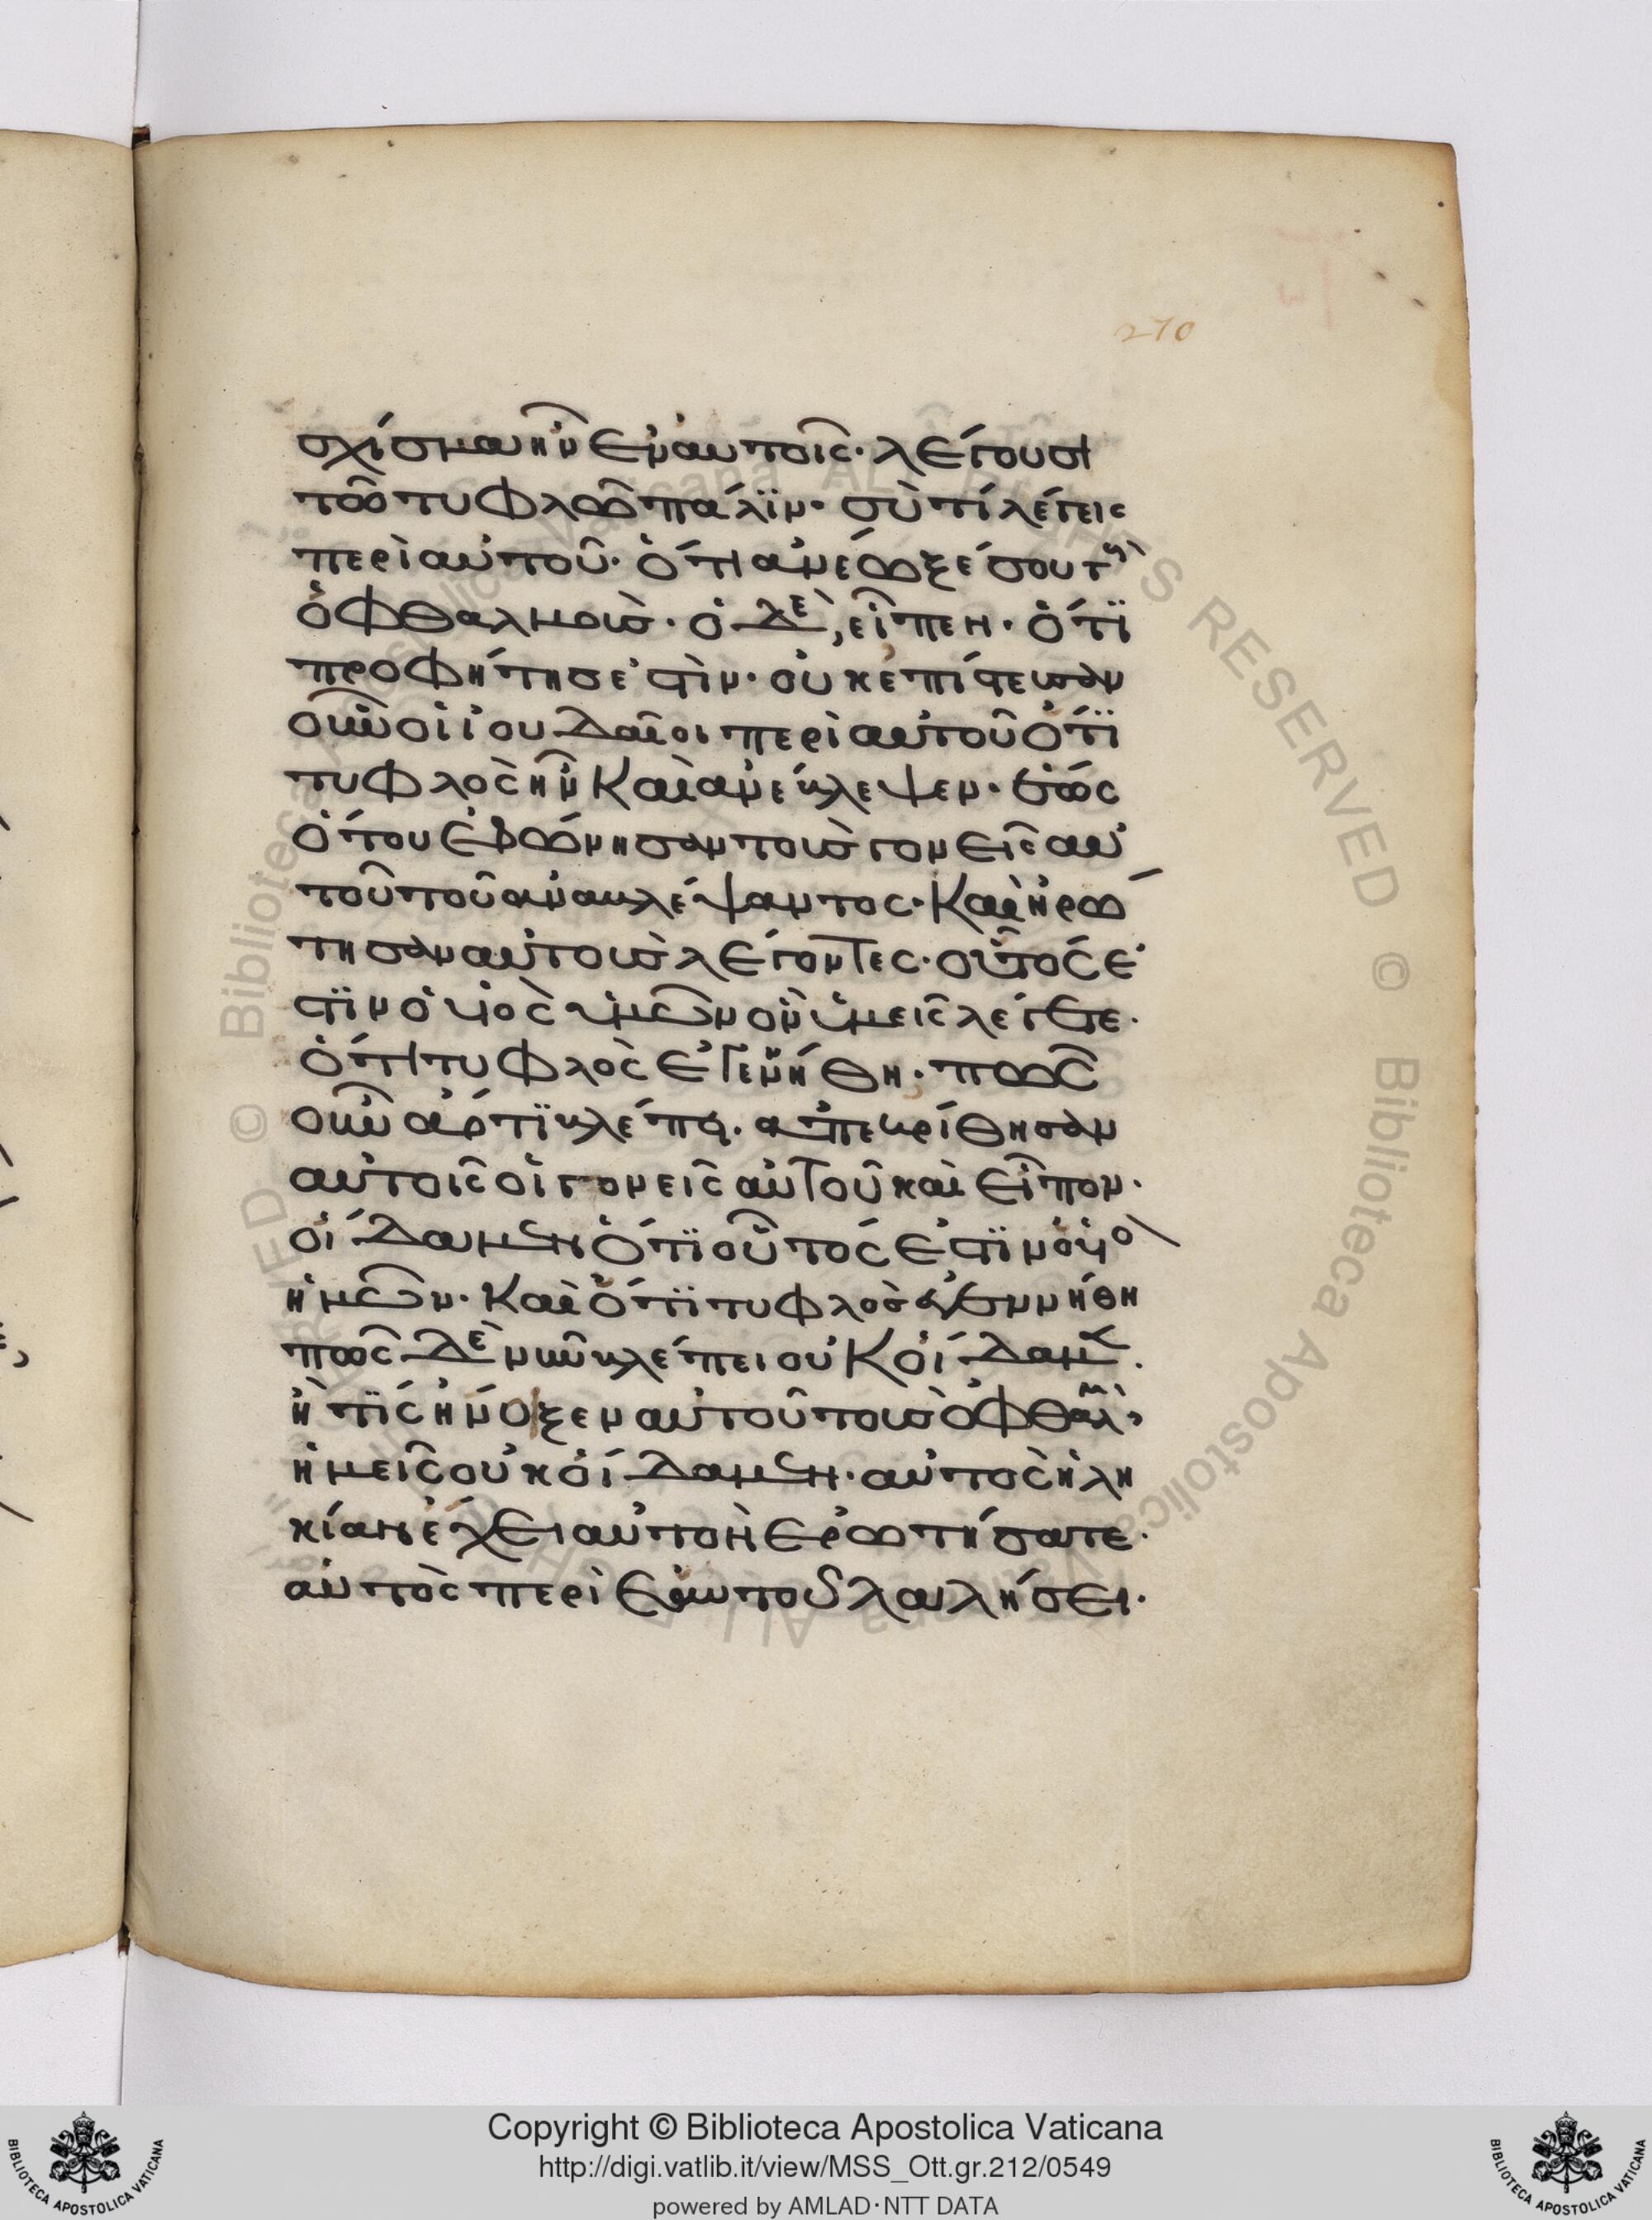 270
σχίσμα ἦν ἐν αὐτοῖς· λέγουσι
τῶ τυφλῶ πάλϊν· σὺ τί λέγεις
περὶ αὐτοῦ· ὅτι ἀνέωξέ σου τοὺ
ὀφθαλμοὺσ· ὁ δὲ, εἶπεν· ὅτϊ
προφήτησ ἐστὶν· οὐκ ἐπίστευσαν
οὖν οἱ ἰουδαῖοι περὶ αὐτοῦ ὅτϊ
τυφλὸς ἦν καὶ ἀνέβλεψεν· ἕως
ὅτου ἐφώνησαν τοὺσ γονεῖς αὐ
τοῦ τοῦ ἀναβλέψαντος· καὶ ἠρώ
τησαν αὐτοὺσ λέγοντες· οὗτός ἐ
στϊν ὁ υἱὸς ὑμῶν ὃν ὑμεῖς λέγετε·
ὅτι τυφλὸς ἐγεννήθη· πῶς
οὖν ἄρτϊ βλέπει· ἀπεκρίθησαν
αὐτοῖς οἱ γονεῖς αὐτοῦ καὶ εἶπον·
οἴδαμεν ὅτϊ οὗτός ἐστϊν ὁ υἱὸ
ἡμῶν· καὶ ὅτϊ τυφλὸσ ἐγεννήθη
πῶς δὲ νῦν βλέπει οὐκ οἴδαμεν·
ἢ τϊς ἤνοιξεν αὐτοῦ τοὺσ ὀφθαλμ
ἡμεῖς οὐκ οἴδαμεν· αὐτὸς ἡλη
κίαν ἔχει αὐτὸν ἐρωτήσατε·
αὐτὸς περὶ ἑαυτοῦ λαλήσει·
Copyright © Biblioteca Apostolica Vaticana
http://digi.vatlib.it/view/MSS_Ott.gr.212/0549
powered by AMLAD·NTT DATA